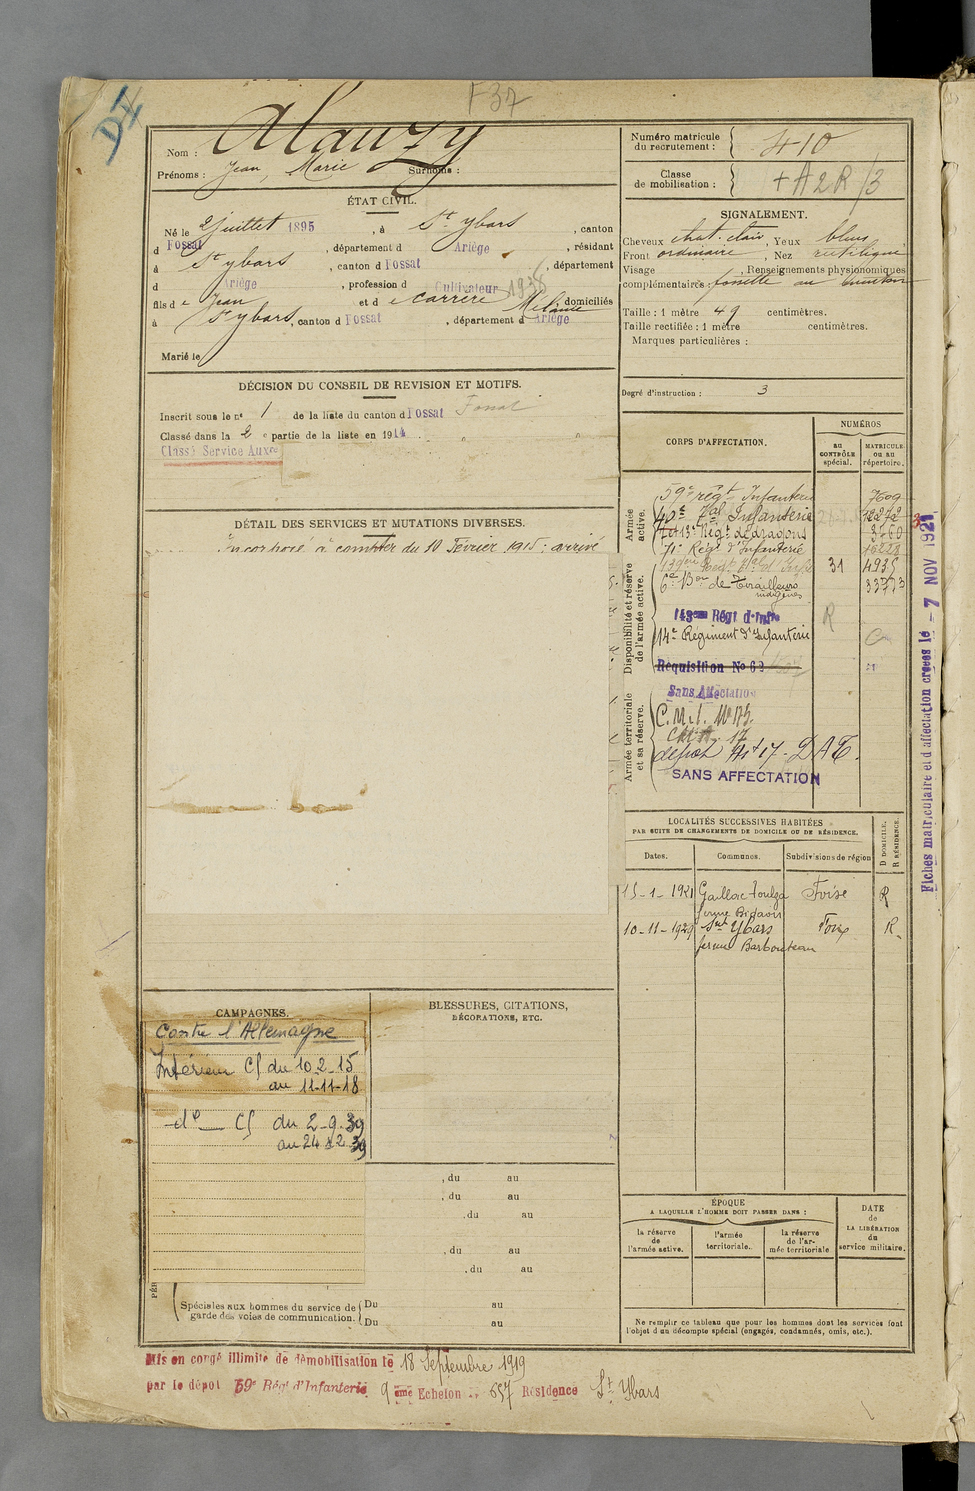 F37
DI
Nom : Alauzy
Prénoms : Jean, Marie Surnoms :
ÉTAT CIVIL.
Né le 2 juillet 1895, à St Ybars, canton
d Fossat, département d Ariège, résidant
à St Ybars, canton d Fossat, département
d Ariège, profession d Cultivateur 1938
fils d e Jean et d e Carrère Mélanie domiciliés
à St Ybars, canton d Fossat, département d Ariège
Marié le
DÉCISION DU CONSEIL DE REVISION ET MOTIFS.
Inscrit sous le no 1 de la liste du canton d Fossat Fossat
Classé dans la 2 e partie de la liste en 1914.
Classé Service Auxre
DÉTAIL DES SERVICES ET MUTATIONS DIVERSES.
Incorporé à compter du 10 Février 1915 : arrivé
CAMPAGNES.
Contre l'Allemagne
Intérieur CS du 10-2-15
au 11-11-18
-do- CS du 2-9-39
au 24 12 39
BLESSURES, CITATIONS,
DÉCORATIONS, ETC.
, du au
, du au
, du au
, du au
, du au
Spéciales aux hommes du service de Du au
garde des voies de communication. Du au
Numéro matricule
du recrutement : 410
Classe
de mobilisation : + A2R/3
SIGNALEMENT.
Cheveux chat. clair, Yeux bleus
Front ordinaire, Nez rectiligne
Visage , Renseignements physionomiques
complémentaires : fossette au menton
Taille : 1 mètre 49 centimètres.
Taille rectifiée : 1 mètre centimètres.
Marques particulières :
Degré d'instruction : 3
CORPS D'AFFECTATION.
NUMÉROS
au
CONTRÔLE
spécial.
MATRICULE
ou au
répertoire.
Armée
active.
59e régt Infanterie 7609
Infanterie 12272
13e Régt de dragons 3560
71e Régt d'Infanterie 16228
31 4935
Disponibilité et réserve
de l'armée active.
6e Bon de Tirailleurs 33773
indigènes
143eme Régt d'Infie R
14e Régiment d'Infanterie C
Réquisition No 62
Sans Affectation
Armée territoriale
et sa réserve.
C.M.I. No 173
17
dépôt Art 17 - D.A.T.
SANS AFFECTATION
LOCALITÉS SUCCESSIVES HABITÉES
PAR SUITE DE CHANGEMENTS DE DOMICILE OU DE RÉSIDENCE.
D DOMICILE.
R RÉSIDENCE.
Dates. Communes. Subdivisions de région
15-1-1921 Gaillac Toulza Foix R
ferme
10-11-1929 St Ybars Foix R.
ferme Barbouteau
ÉPOQUE
A LAQUELLE L'HOMME DOIT PASSER DANS :
DATE
de
LA LIBÉRATION
du
service militaire.
la réserve
de
l'armée active.
l'armée
territoriale.
la réserve
de l'ar-
mée territoriale
Ne remplir ce tableau que pour les hommes dont les services font
l'objet d'un décompte spécial (engagés, condamnés, omis, etc.).
Fiches matriculaire et d'affectation créées le - 7 NOV 1921
Mis en congé illimité de démobilisation le 18 Septembre 1919
par le dépôt 59e Régt d'Infanterie 9 eme Echelon 657 Résidence St Ybars